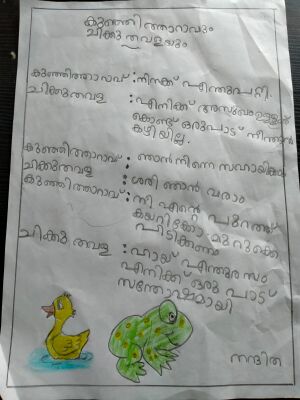 കുഞ്ഞിത്താറാവും
ചിക്കു തവളയും
കുഞ്ഞിത്താറാവ് : നിനക്ക് എന്തുപറ്റി.
ചിക്കുതവള : എനിക്ക് അസുഖം ഉള്ളത്
കൊണ്ട് ഒരുപാട് നീന്താൻ
കഴിയില്ല.
കുഞ്ഞിത്താറാവ് : ഞാൻ നിന്നെ സഹായിക്കാം
ചിക്കുതവള : ശരി ഞാൻ വരാം
കുഞ്ഞിത്താറാവ് : നീ എന്റെ പുറത്ത്
കയറിക്കോ മുറുക്കെ
പിടിക്കണം
ചിക്കു തവള : ഹായ് എന്തുരസം
എനിക്ക് ഒരു പാട്
സന്തോഷമായി
നന്ദിത